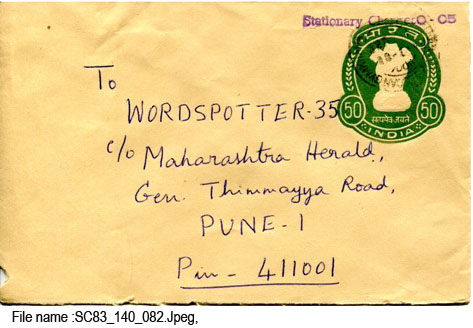 Stationary Charges 0-05
भारत
50 50
सत्यमेव जयते
INDIA
To
WORDSPOTTER-35
c/o Maharashtra Herald,
Gen. Thimmayya Road,
PUNE-1
Pin - 411001
File name :SC83_140_082.Jpeg,